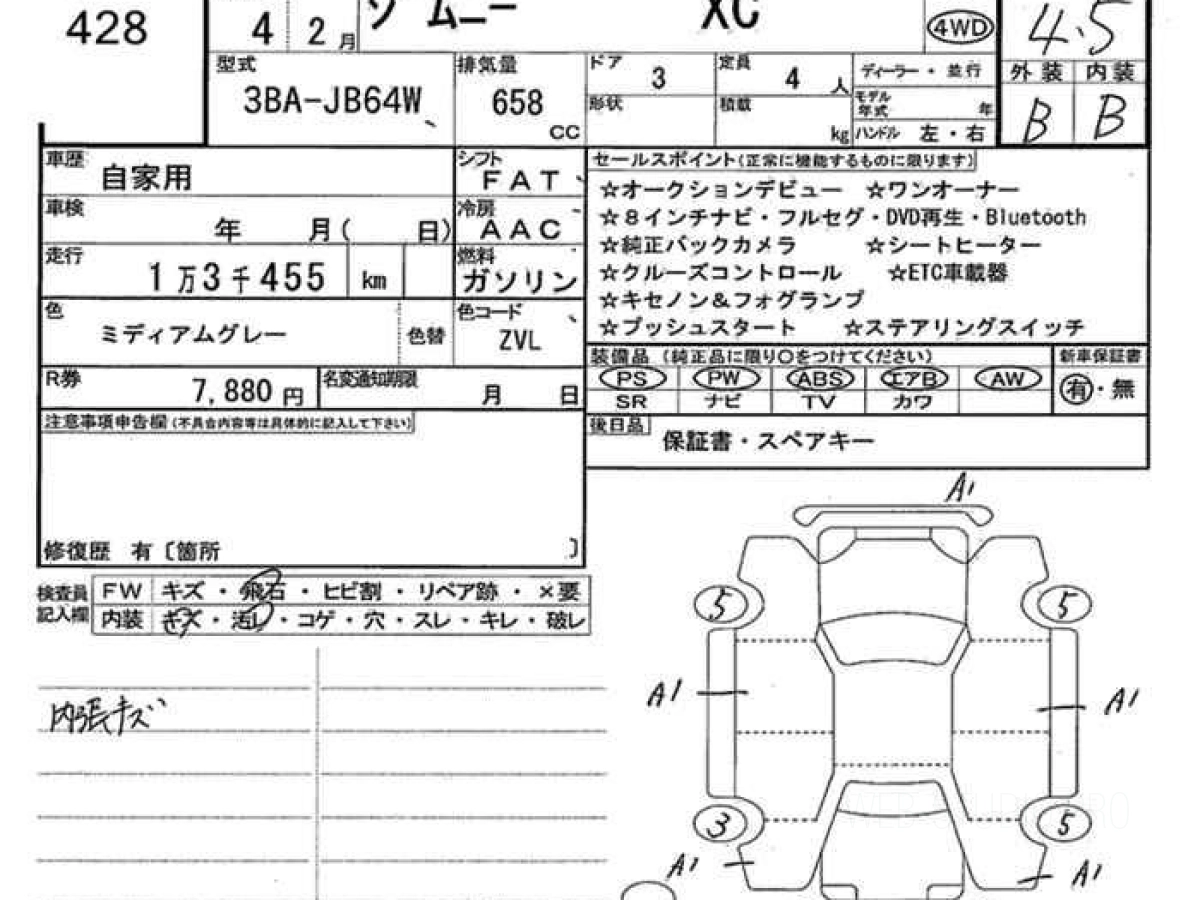 428
4 2月
ジムニー XC
4WD
4.5
型式
3BA-JB64W
排気量
658
CC
ドア
3
定員
4 人
形状
積載
kg
ディーラー・並行
モデル
年式 年
ハンドル 左・右
外装 内装
B B
車歴
自家用
シフト
FAT
車検
年 月( 日)
冷房
AAC
走行
1万3千455 km
燃料
ガソリン
色
ミディアムグレー
色替
色コード
ZVL
R券
7,880 円
名変通知期限
月 日
セールスポイント(正常に機能するものに限ります)
☆オークションデビュー ☆ワンオーナー
☆8インチナビ・フルセグ・DVD再生・Bluetooth
☆純正バックカメラ ☆シートヒーター
☆クルーズコントロール ☆ETC車載器
☆キセノン&フォグランプ
☆プッシュスタート ☆ステアリングスイッチ
装備品 (純正品に限り○をつけてください)
PS PW ABS エアB AW
SR ナビ TV カワ
新車保証書
有・無
後日品
保証書・スペアキー
注意事項申告欄(不具合内容等は具体的に記入して下さい)
修復歴 有〔箇所 〕
検査員
記入欄
FW キズ・飛石・ヒビ割・リペア跡・×要
内装 キズ・汚レ・コゲ・穴・スレ・キレ・破レ
内張キズ
A1
5 5
A1 A1
3 5
A1 A1